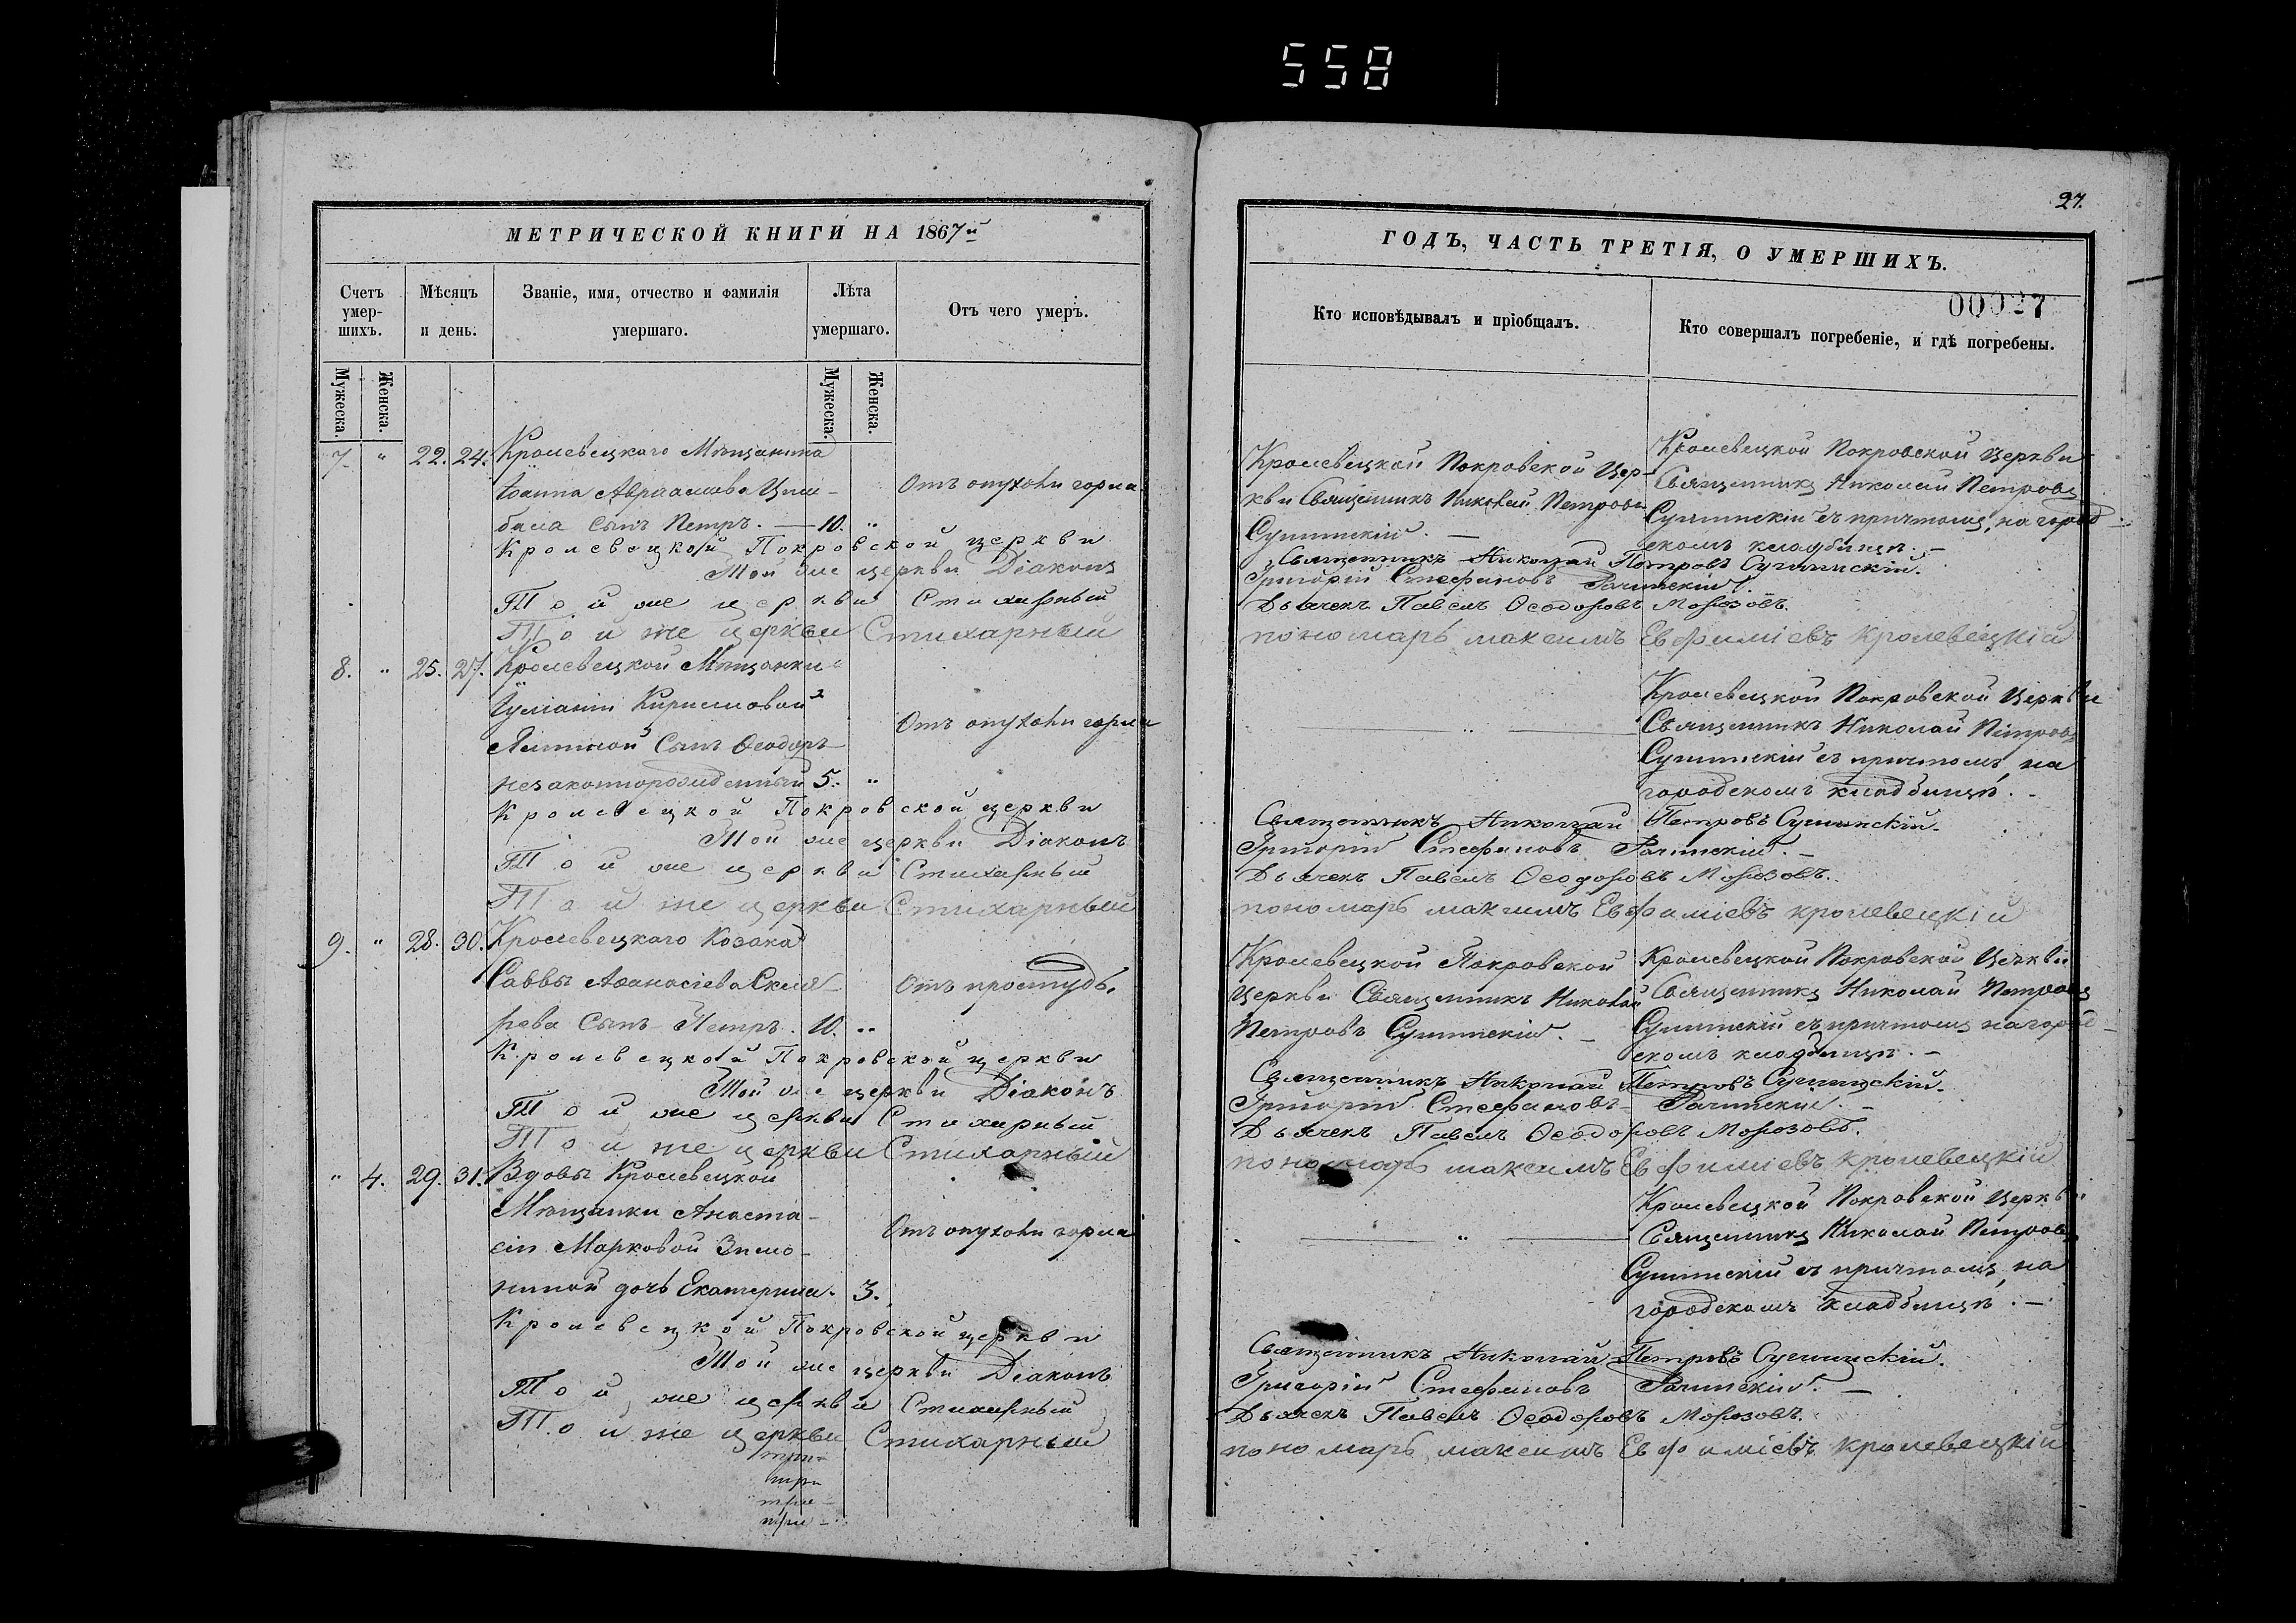 558
МЕТРИЧЕСКОЙ КНИГИ НА 1867й
Счетъ умер-шихъ.
Мѣсяцъ и день.
Званіе, имя, отчество и фамилія умершаго.
Лѣта умершаго.
Отъ чего умеръ.
Мужеска.
Женска.
Мужеска.
Женска.
7. " 22. 24. Кролевецкаго Мѣщанина
Іоанна Авраамова Цим-
бала сынъ Петръ. — 10. "
Отъ опухоли горла
Кролевецкой Покровской церкви
Той же церкви Діаконъ
Той же церкви Стихарный
Той же церкви Стихарный
8. " 25. 27. Кролевецкой Мѣщанки
Іуліаніи Кирилловой
Сынъ Ѳеодоръ
незаконнорожденный 5. "
Отъ опухоли горла
Кролевецкой Покровской церкви
Той же церкви Діаконъ
Той же церкви Стихарный
Той же церкви Стихарный
9. " 28. 30. Кролевецкаго Козака
Саввы Аѳанасіева Скля-
рева Сынъ Петръ. 10. "
Отъ простуды
Кролевецкой Покровской церкви
Той же церкви Діаконъ
Той же церкви Стихарный
Той же церкви Стихарный
" 4. 29. 31. Вдовы Кролевецкой
Мѣщанки Анаста-
сіи Марковой Зимо-
ниной дочь Екатерина. 3.
Отъ опухоли горла
Кролевецкой Покровской церкви
Той же церкви Діаконъ
Той же церкви Стихарный
Той же церкви Стихарный
три-
три
три-
три-
27.
ГОДЪ, ЧАСТЬ ТРЕТІЯ, О УМЕРШИХЪ.
00027
Кто исповѣдывалъ и пріобщалъ.
Кто совершалъ погребеніе, и гдѣ погребены.
Кролевецкой Покровской Цер-
кви Священникъ Николай Петровъ
Сушинскій. —
Кролевецкой Покровской Церкви
Священникъ Николай Петровъ
Сушинскій съ причтомъ, на город-
скомъ кладбищѣ. —
Священникъ Николай Петровъ Сушинскій.
Григорій Стефановъ Рачинскій.
Дьячекъ Павелъ Ѳеодоровъ Морозовъ.
пономарь максимъ Евфиміевъ Кролевецкій
— " —
Кролевецкой Покровской Церкви
Священникъ Николай Петровъ
Сушинскій съ причтомъ, на
городскомъ кладбищѣ. -
Священникъ Николай Петровъ Сушинскій.
Григорій Стефановъ Рачинскій. —
Дьячекъ Павелъ Ѳеодоровъ Морозовъ.
пономарь максимъ Евфиміевъ кролевецкій
Кролевецкой Покровской
Церкви Священникъ Николай
Петровъ Сушинскій. —
Кролевецкой Покровской Церкви
Священникъ Николай Петровъ
Сушинскій съ причтомъ на город-
скомъ кладбищѣ. —
Священникъ Николай Петровъ Сушинскій.
Григорій Стефановъ Рачинскій. —
Дьячекъ Павелъ Ѳеодоровъ Морозовъ.
пономарь максимъ Евфиміевъ кролевецкій
— " —
Кролевецкой Покровской Церкви
Священникъ Николай Петровъ
Сушинскій съ причтомъ, на
городскомъ кладбищѣ. —
Священникъ Николай Петровъ Сушинскій.
Григорій Стефановъ Рачинскій. —
Дьячекъ Павелъ Ѳеодоровъ Морозовъ.
пономарь максимъ Евфиміевъ кролевецкій